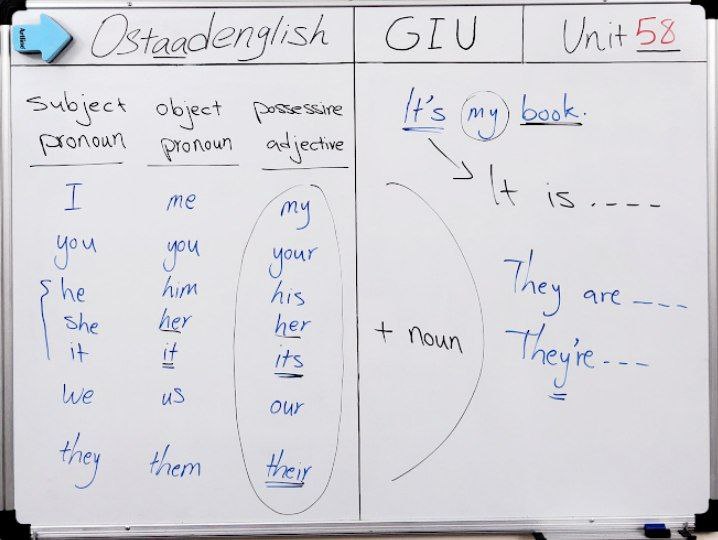 Artline
Ostaadenglish GIU Unit 58
subject pronoun
object pronoun
possessive adjective
I me my
you you your
he him his
she her her
it it its
we us our
they them their
+ noun
It's my book.
It is ....
They are ---
They're ---